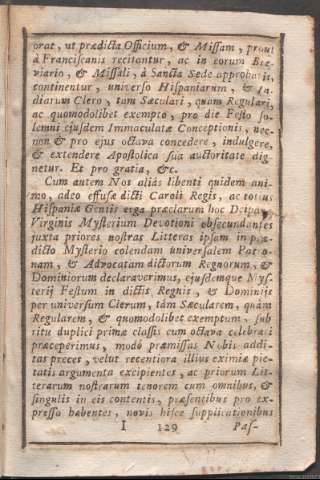 orat, ut prædicta Officium, & Missam, prout
à Franciscanis recitantur, ac in eorum Bre-
viario, & Missali, à Sancta Sede approbatis,
continentur, universo Hispaniarum, & In-
diarum Clero, tam Sæculari, quam Regulari,
ac quomodolibet exempto, pro die Festo so-
lemni ejusdem Immaculatæ Conceptionis, nec-
non & pro ejus octava concedere, indulgere,
& extendere Apostolica sua auctoritate dig-
netur. Et pro gratia, &c.
Cum autem Nos aliàs libenti quidem ani-
mo, adeo effusæ dicti Caroli Regis, ac totius
Hispaniæ Gentis erga præclarum hoc Deiparæ
Virginis Mysterium Devotioni obsecundantes
juxta priores nostras Litteras ipsam in præ-
dicto Mysterio colendam universalem Patro-
nam, & Advocatam dictorum Regnorum, &
Dominiorum declaraverimus, ejusdemque Mys-
terij Festum in dictis Regnis, & Dominijs
per universum Clerum, tàm Sæcularem, quàm
Regularem, & quomodolibet exemptum, sub
ritu duplici primæ classis cum octava celebrari
præceperimus, modò præmissas Nobis addi-
tas preces, velut recentiora illius eximiæ pie-
tatis argumenta excipientes, ac priorum Lit-
terarum nostrarum tenorem cum omnibus, &
singulis in eis contentis, præsentibus pro ex-
presso habentes, novis hisce supplicationibus
I 129 Pas-